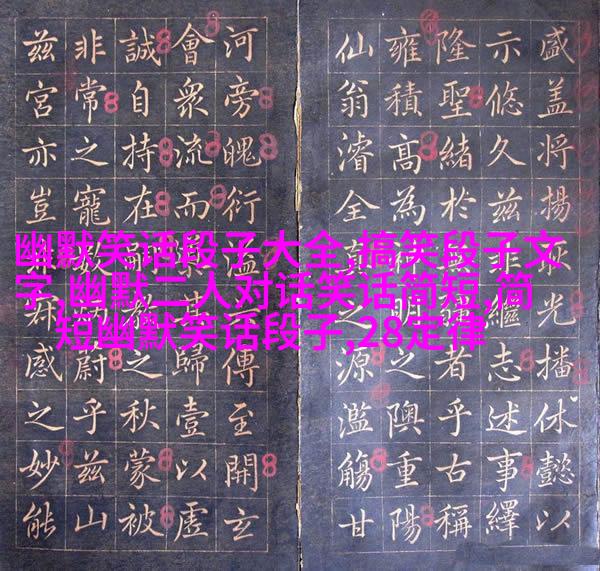 幽默笑话段子大全,搞笑段子文
字,幽默二人对话笑话简短,简
短幽默笑话段子,28定律
盛盖将揚耿光播休懿以
示悠久兹非繼志述事繹
隆聖緒於者乎古稱
雍積高為神明之隩重陽
仙翁濬全真之源濫觴甘
河旁魄衍傳至開玄
會衆流而其歸壹以虛
誠自持在嗣教之秋蒙被
非常之寵蔚乎兹山
兹宮亦豈群感之妙能